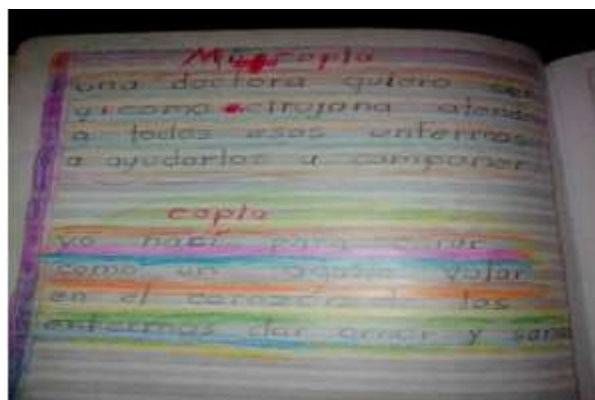 Mi copla
una doctora quiero ser
y como cirujana atende
a todos esos enfermos
a ayudarlos a componer
copla
yo nací para curar
como un aguila volar
en el corazón de los
enfermos dar amor y sana